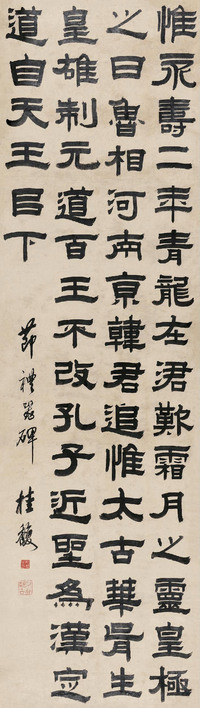 惟永壽二年青龍在涒歎霜月之靈皇極
之日魯相河南京韓君追惟太古華胥生
皇雄制元道百王不改孔子近聖為漢定
道自天王㠯下
節禮器碑 桂馥